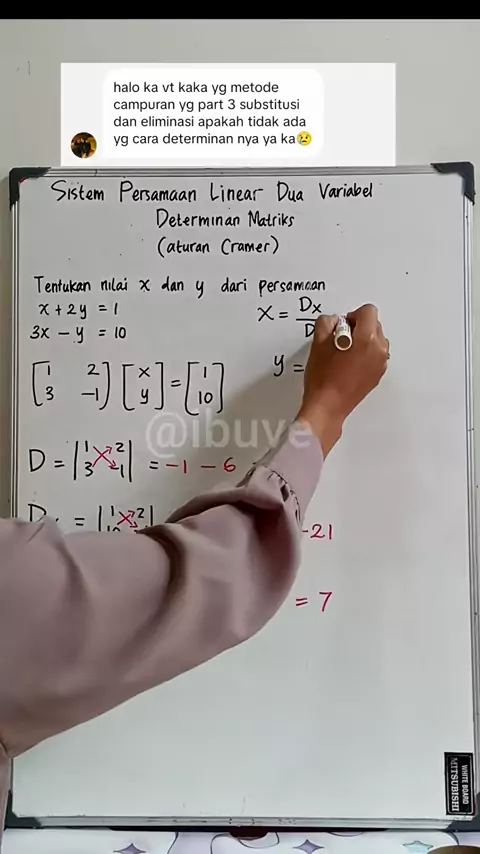 halo ka vt kaka yg metode
campuran yg part 3 substitusi
dan eliminasi apakah tidak ada
yg cara determinan nya ya ka😢
Sistem Persamaan Linear Dua Variabel
Determinan Matriks
(aturan Cramer)
Tentukan nilai x dan y dari persamaan
x + 2y = 1
3x − y = 10
x = Dx
D
y =
[1 2] [x] = [1]
[3 −1] [y] [10]
@ibuve
D = |1 2| = −1 − 6
|3 −1|
= |1 2|
−21
= 7
WHITE BOARD
MITSUBISHI